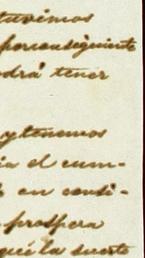 tuvimos
por consiguiente
odrá tener
y tenemos
ia el cum-
en consi-
prospera
qué la suerte